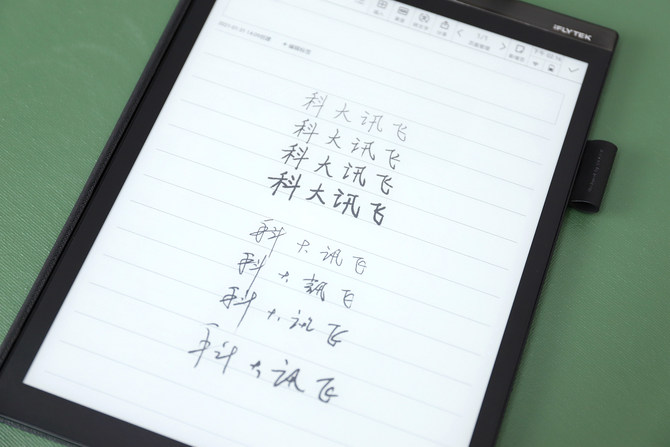 iFLYTEK
1/1
科大讯飞
科大讯飞
科大讯飞
科大讯飞
科大讯飞
科大讯飞
科大讯飞
科大讯飞